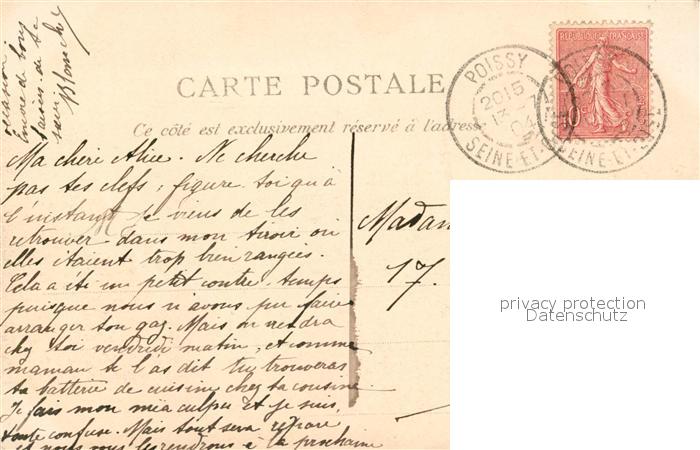 CARTE POSTALE
Ce côté est exclusivement réservé à l'adresse
REPUBLIQUE FRANÇAISE
10c
POISSY
2015
13 -7
04
SEINE-ET-
SEINE-ET-OISE
Ma chère Alice. Ne cherche
pas tes clefs, figure toi qu'à
l'instant je viens de les
retrouver dans mon tiroir où
elles étaient trop bien rangées.
Cela a été un petit contre-temps
puisque nous n'avons pu faire
arranger ton gaz. Mais on viendra
chez toi vendredi matin, et comme
maman te l'as dit tu trouveras
ta batterie de cuisine chez ta cousine
Je fais mon mea culpa et je suis
toute confuse. Mais tout sera réparé
et nous vous les rendrons à la prochaine
occasion
de tous
Blanche
Madam
17.
privacy protection
Datenschutz